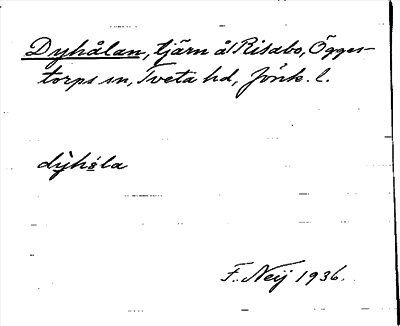 Dyhålan, tjärn å Risabo, Ögges-
torps sn, Tveta hd, Jönk. l.
dỳhå̀la
F. Neij 1936.